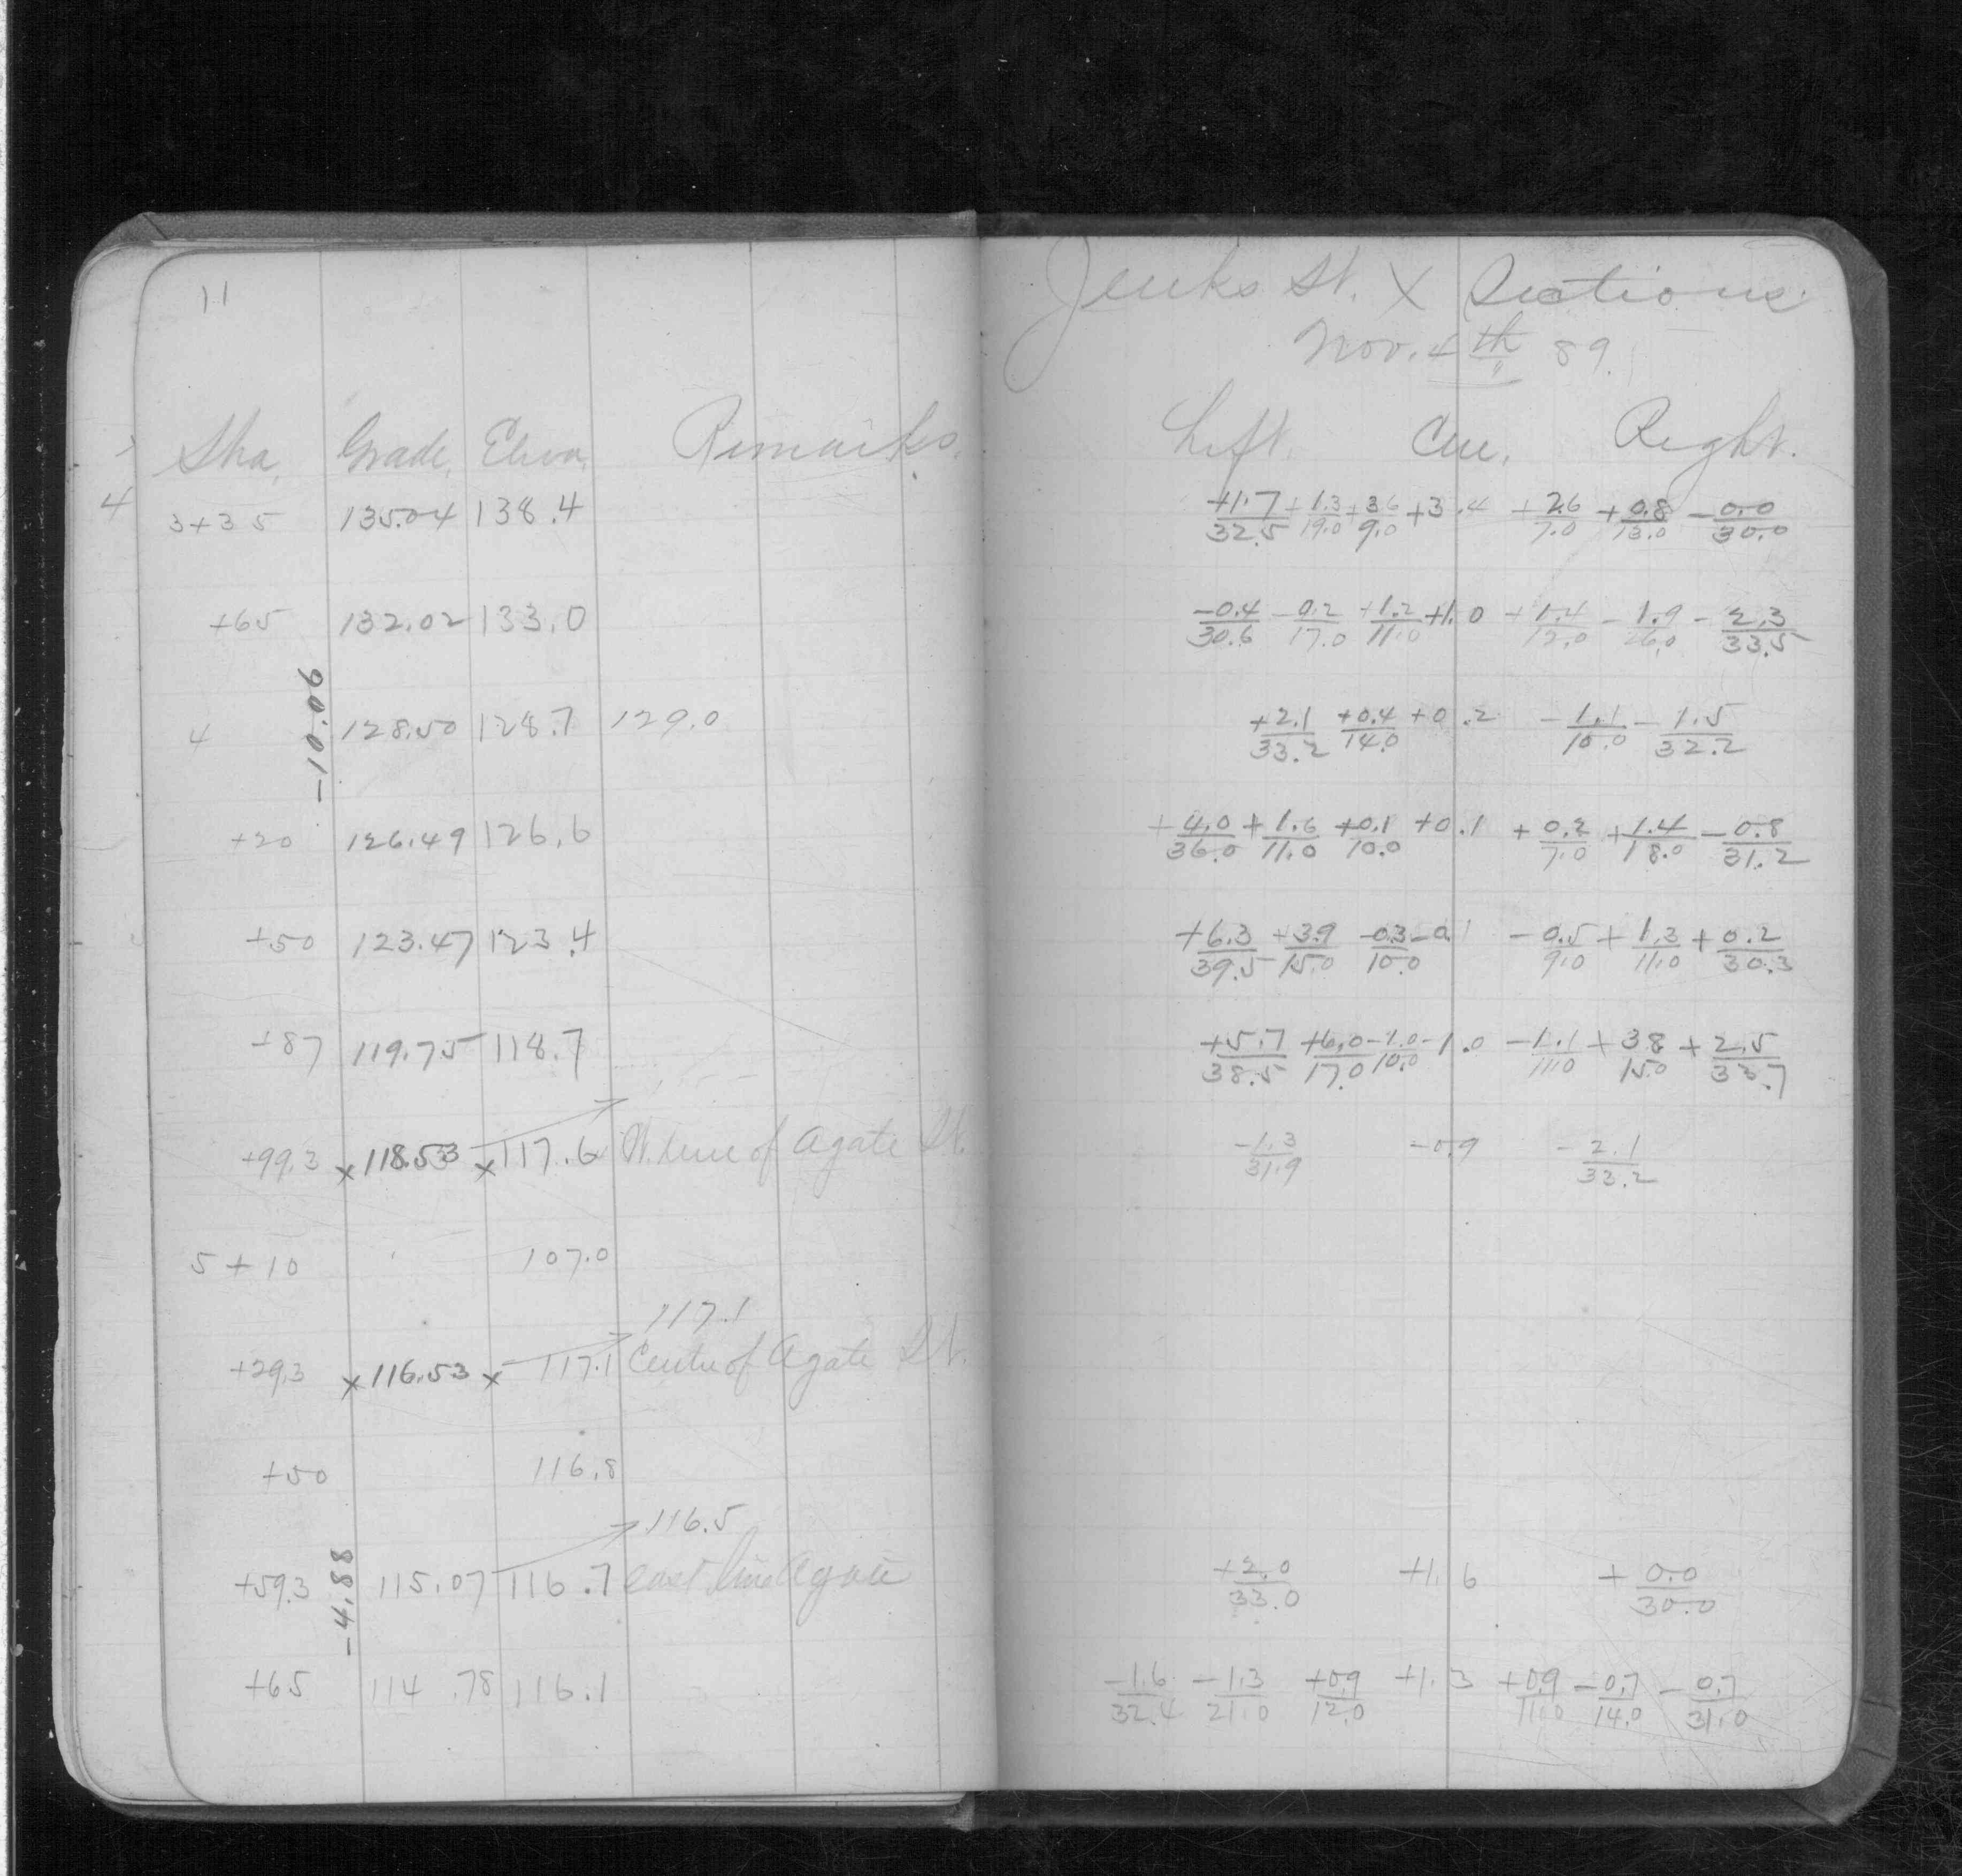 11
Jenks St. X Sections
Nov. 4th 89.
Sta. Grade. Eleva. Remarks. Left. Cen. Right.
4
3+35 135.04 138.4 +1.7/32.5 +1.3/19.0 +3.6/9.0 +3.4 +2.6/7.0 +0.8/13.0 -0.0/30.0
+65 132.02 133.0 -0.4/30.6 -0.2/17.0 +1.2/11.0 +1.0 +1.4/12.0 -1.9/26.0 -2.3/33.5
-10.06
4 128.50 128.7 129.0 +2.1/33.2 +0.4/14.0 +0.2 -1.1/10.0 -1.5/32.2
+20 126.49 126.6 +4.0/36.0 +1.6/11.0 +0.1/10.0 +0.1 +0.2/7.0 +1.4/18.0 -0.8/31.2
+50 123.47 123.4 +6.3/39.5 +3.9/15.0 -0.3/10.0 -0.1 -0.5/9.0 +1.3/11.0 +0.2/30.3
+87 119.75 118.7 +5.7/38.5 +6.0/17.0 -1.0/10.0 -1.0 -1.1/11.0 +3.8/15.0 +2.5/33.7
+99.3 x 118.53 x 117.6 W. line of Agate St. -1.3/31.9 -0.9 -2.1/33.2
5+10 107.0
117.1
+29.3 x 116.53 x 117.1 Centre of Agate St.
+50 116.8
116.5
+59.3 115.07 116.7 east line Agate +2.0/33.0 +1.6 +0.0/30.0
-4.88
+65 114.78 116.1 -1.6/32.4 -1.3/21.0 +0.9/12.0 +1.3 +0.9/11.0 -0.7/14.0 -0.7/31.0